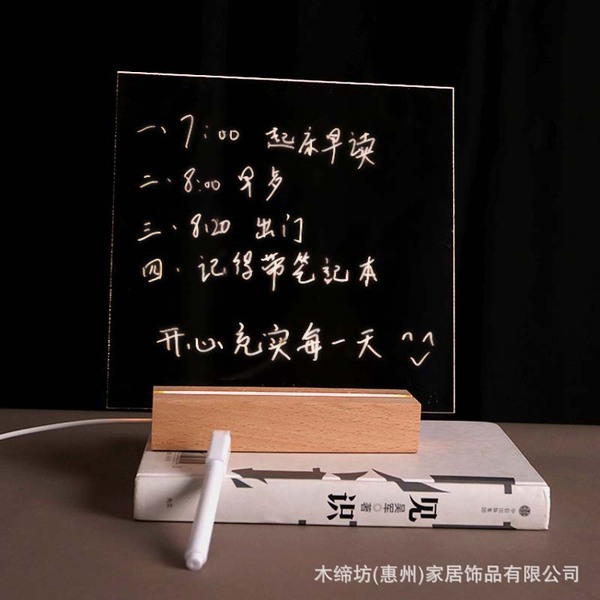 一、7:00 起床早读
二、8:00 早步
三、8:20 出门
四、记得带笔记本
开心充实每一天
见识
吴军 著
中信出版集团
木缔坊(惠州)家居饰品有限公司